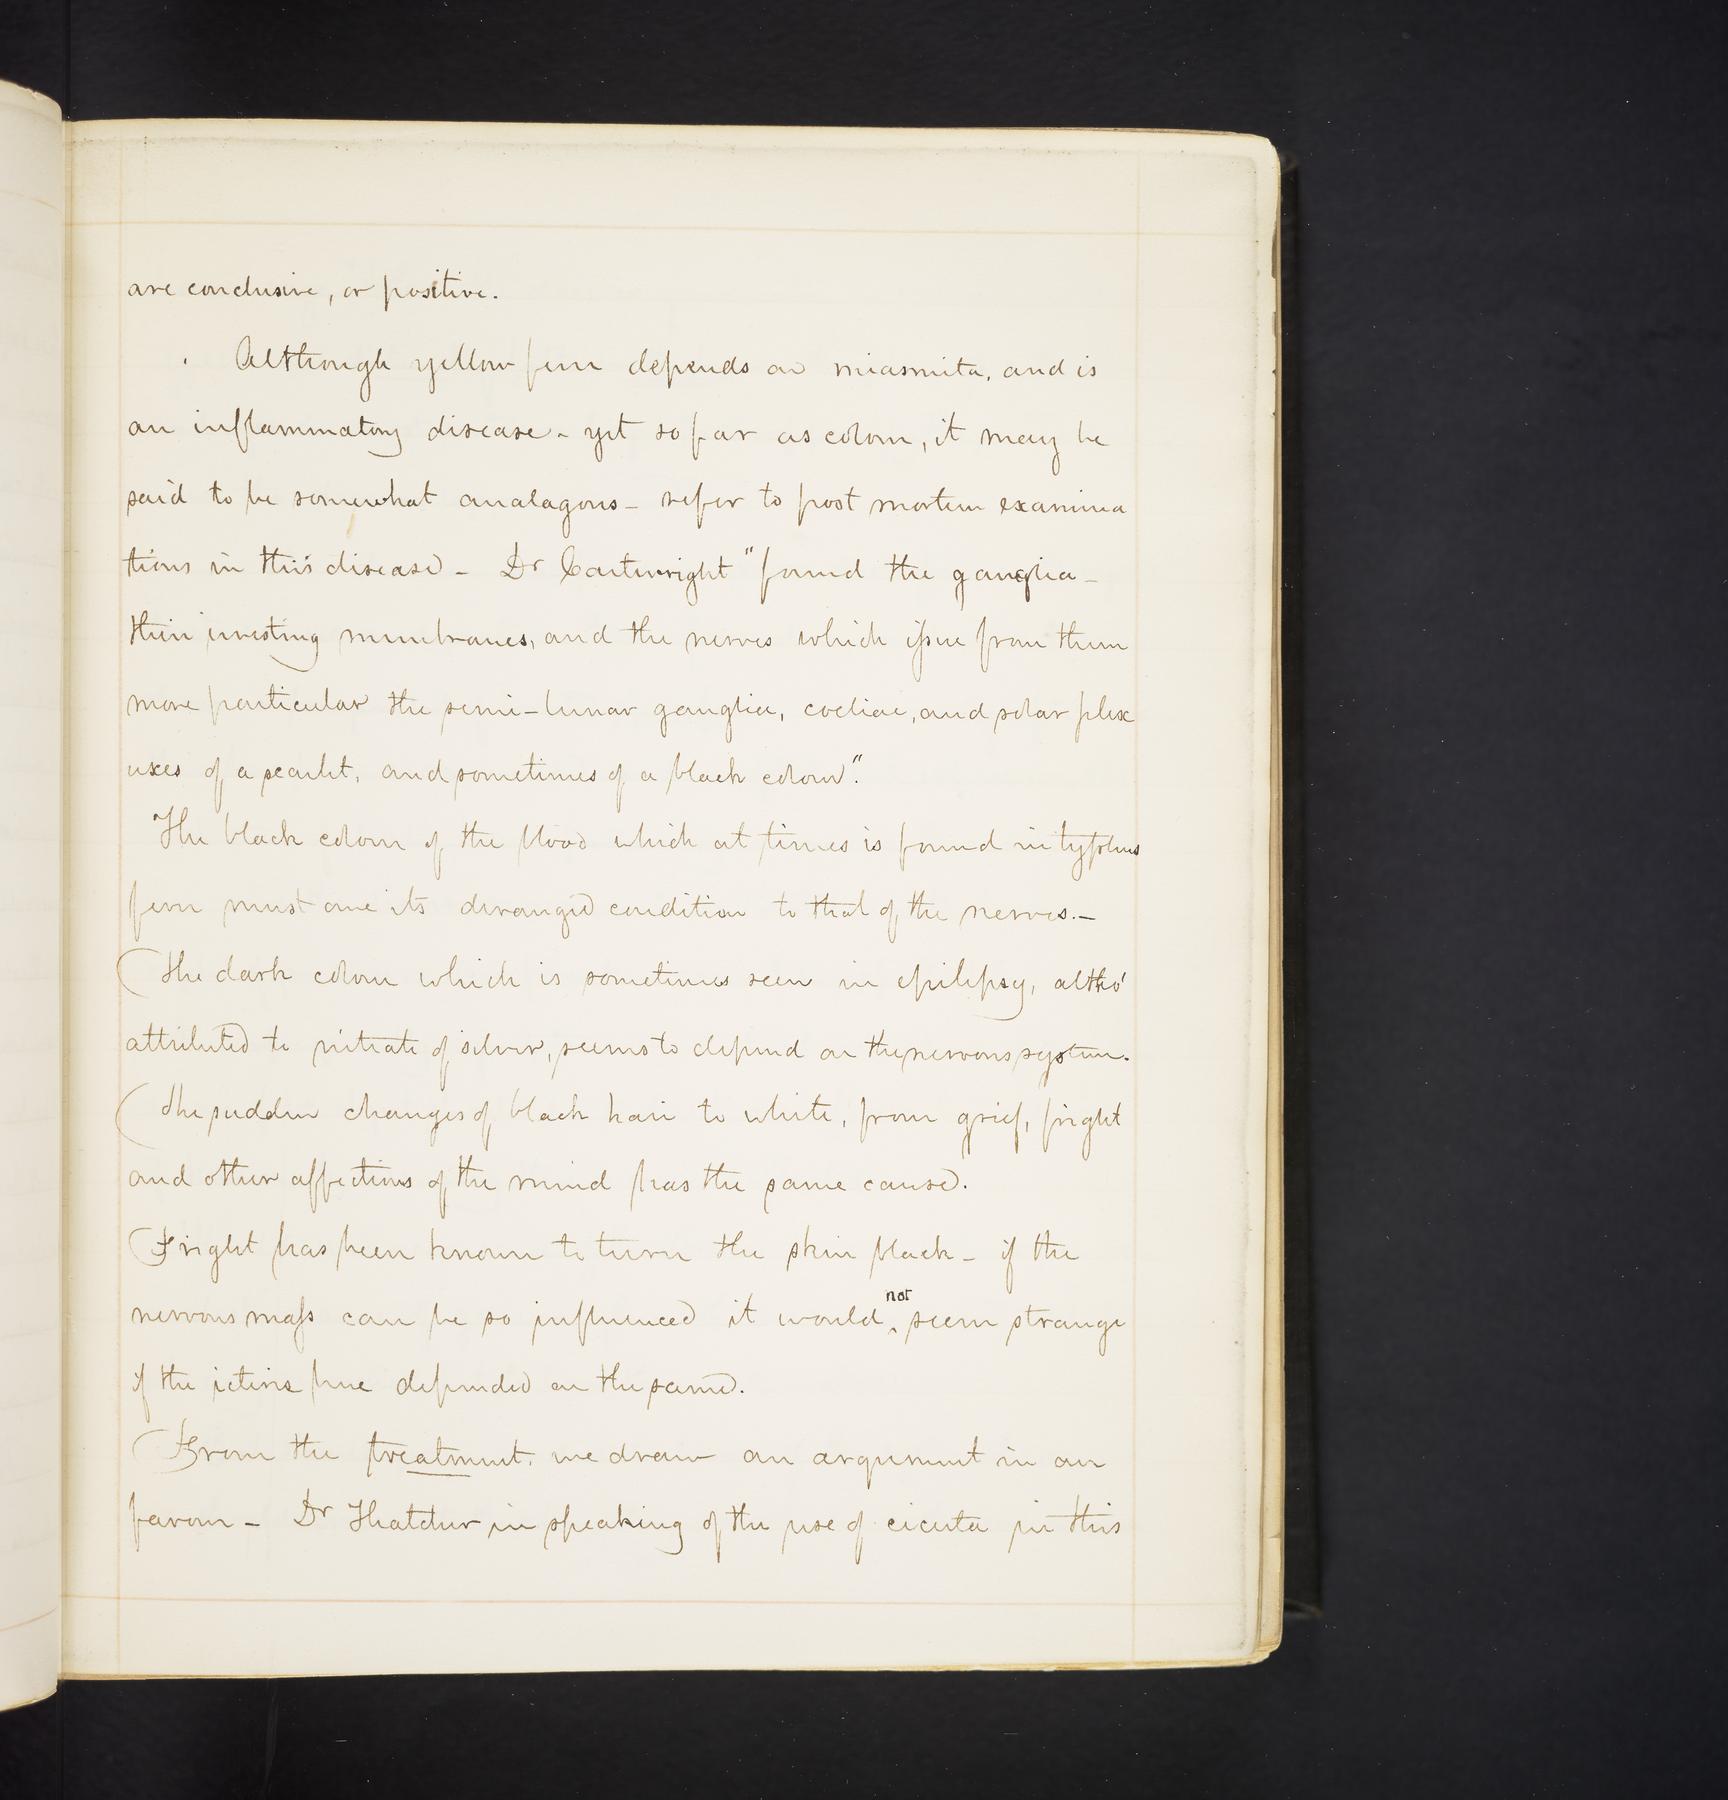 are conclusive, or positive.
Although yellow fever depends on miasmita, and is
an inflammatory disease - yet so far as colour, it may be
said to be somewhat analagous - refer to post mortem examina
tions in this disease - Dr Cartwright "found the ganglia -
their investing membranes, and the nerves which issue from them
more particular the semi-lunar ganglia, coeliac, and solar plex
uxes of a scarlet, and sometimes of a black colour".
The black colour of the blood which at times is found in typhus
fever must owe its deranged condition to that of the nerves. -
The dark colour which is sometimes seen in epilepsy, altho'
attributed to nitrate of silver, seems to depend on the nervous system.
The sudden changes of black hair to white, from grief, fright
and other affections of the mind has the same cause.
Fright has been known to turn the skin black - if the
nervous mass can be so influenced it would not seem strange
if the icteric hue depended on the same.
From the treatment, we draw an argument in our
favour - Dr Thatcher in speaking of the use of cicuta in this